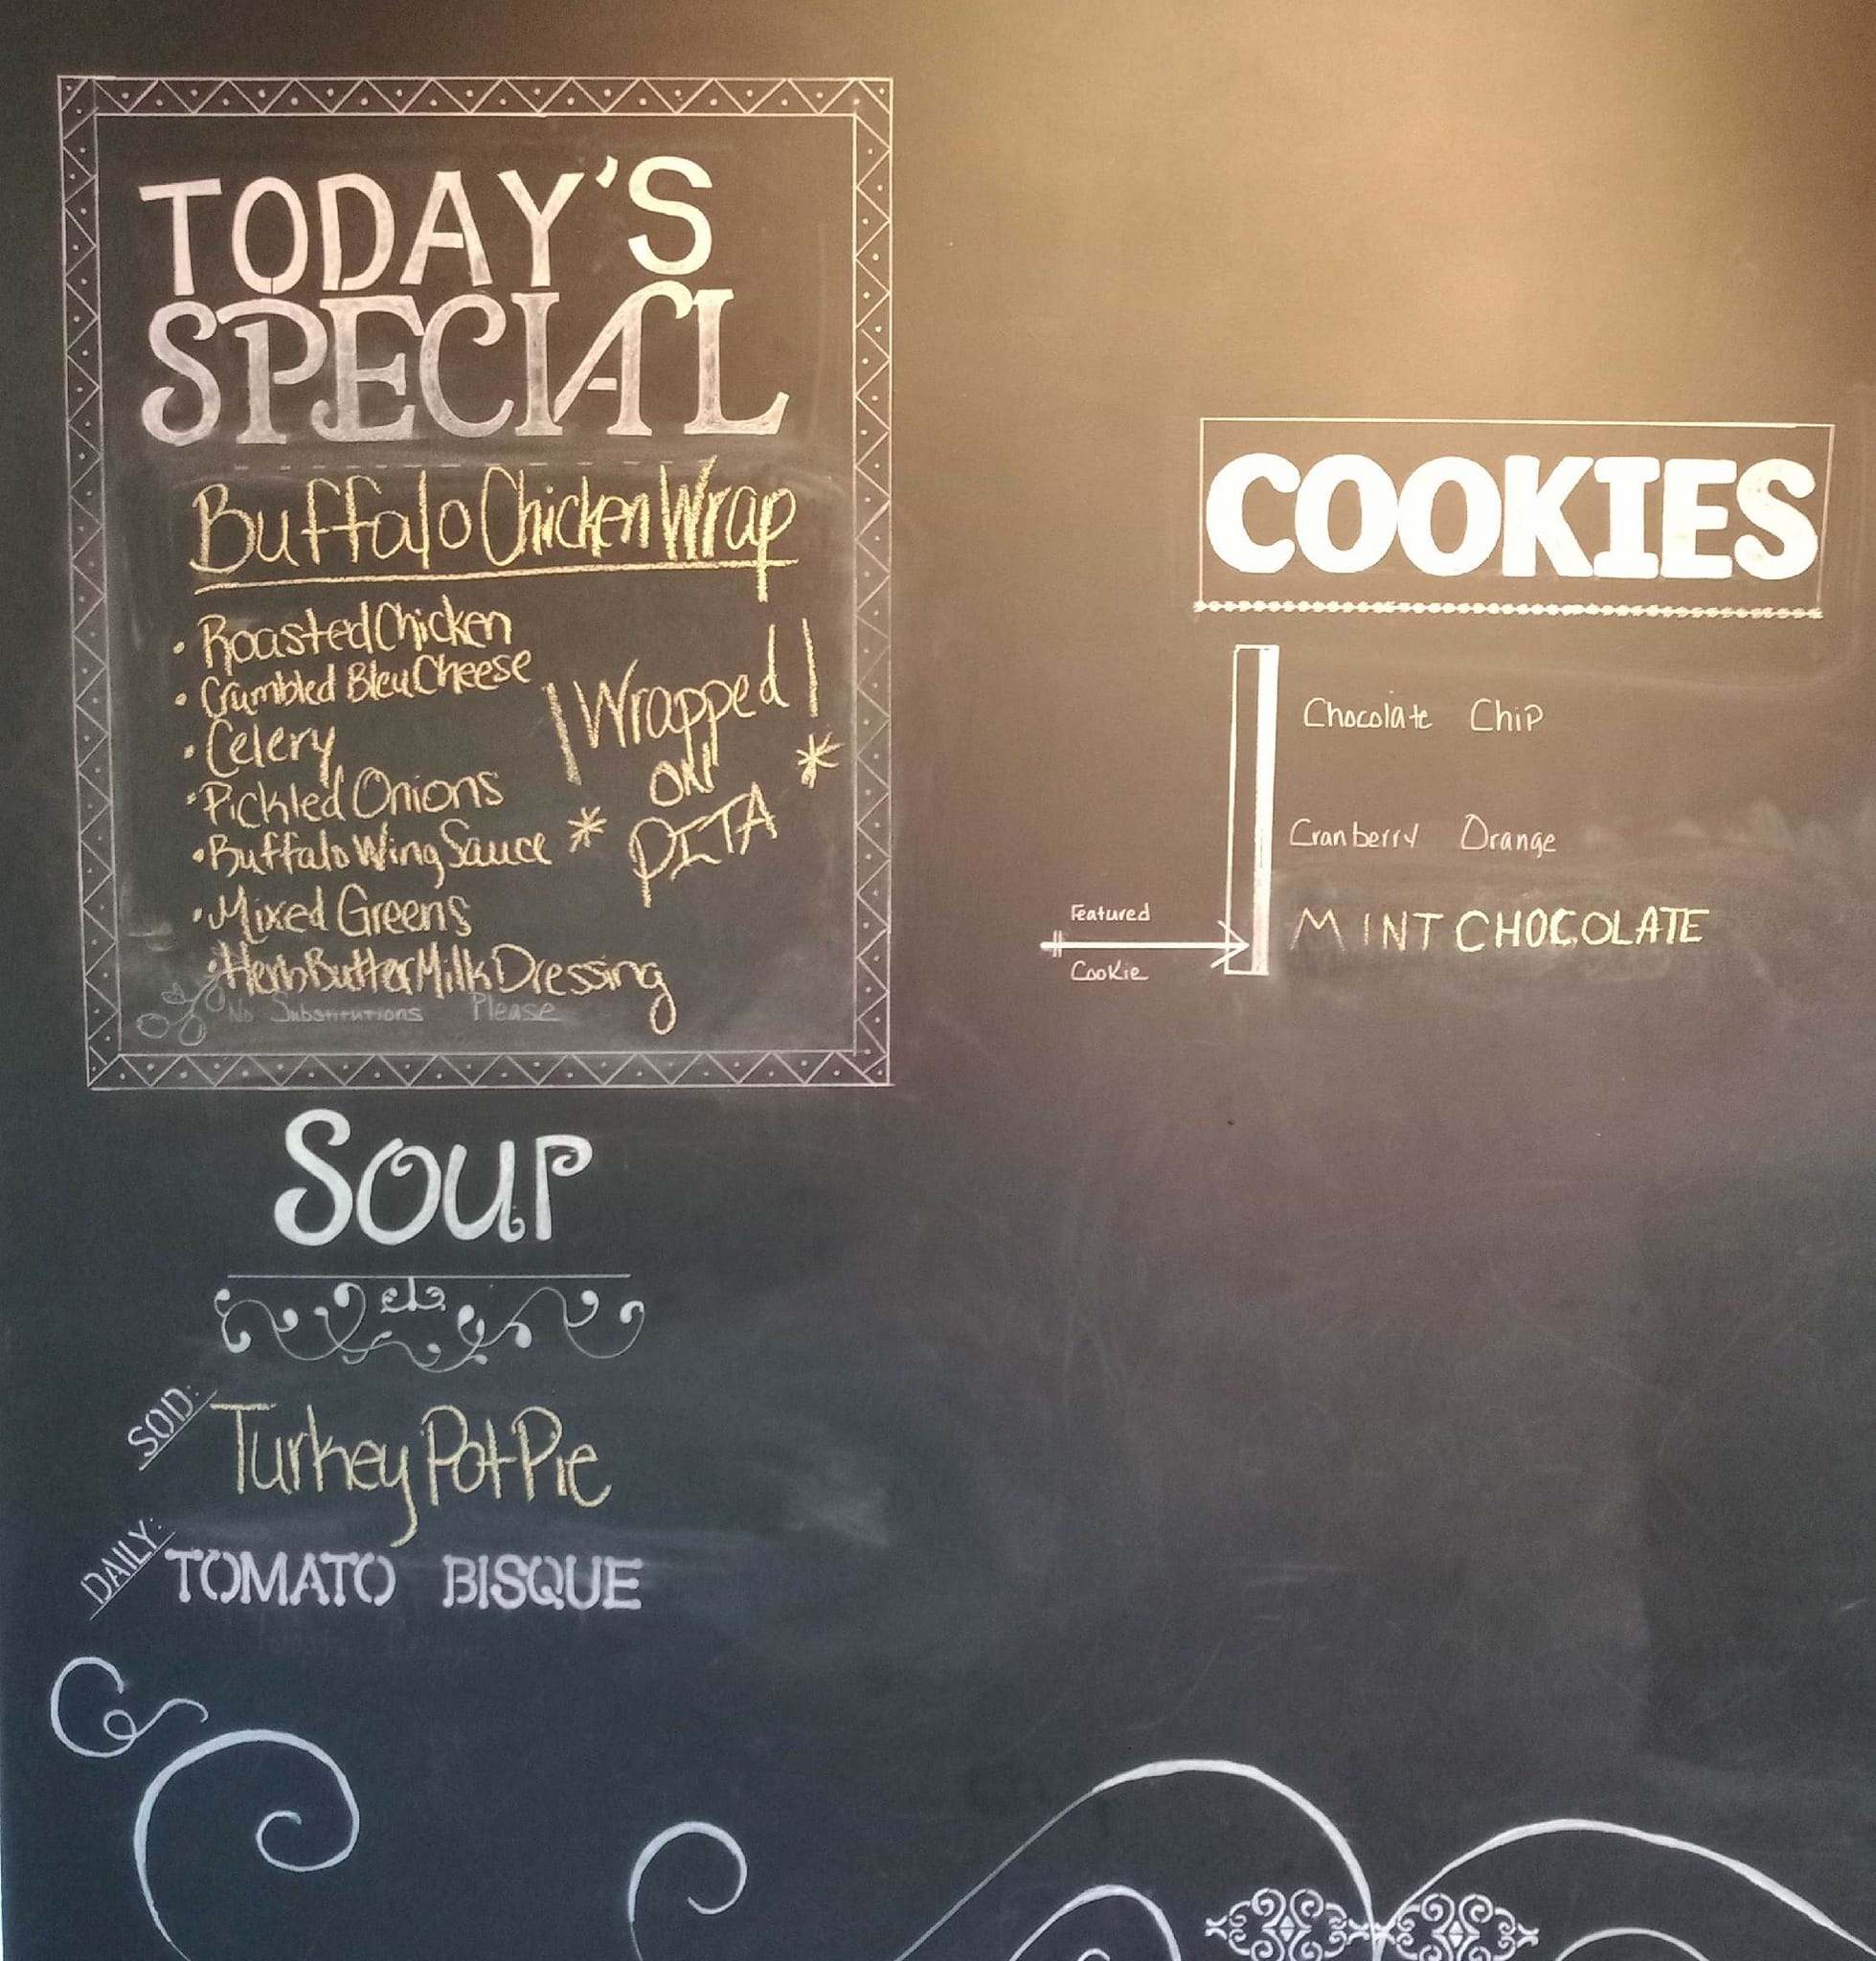 TODAY'S
SPECIAL
Buffalo Chicken Wrap
• Roasted Chicken
• Crumbled Bleu Cheese
• Celery
• Pickled Onions
• Buffalo Wing Sauce
• Mixed Greens
• Herb ButterMilk Dressing
| Wrapped |
ON
* PITA *
No Substitutions Please
SOUP
SOD:
Turkey Pot Pie
DAILY:
TOMATO BISQUE
COOKIES
Chocolate Chip
Cranberry Orange
Featured
Cookie
MINT CHOCOLATE